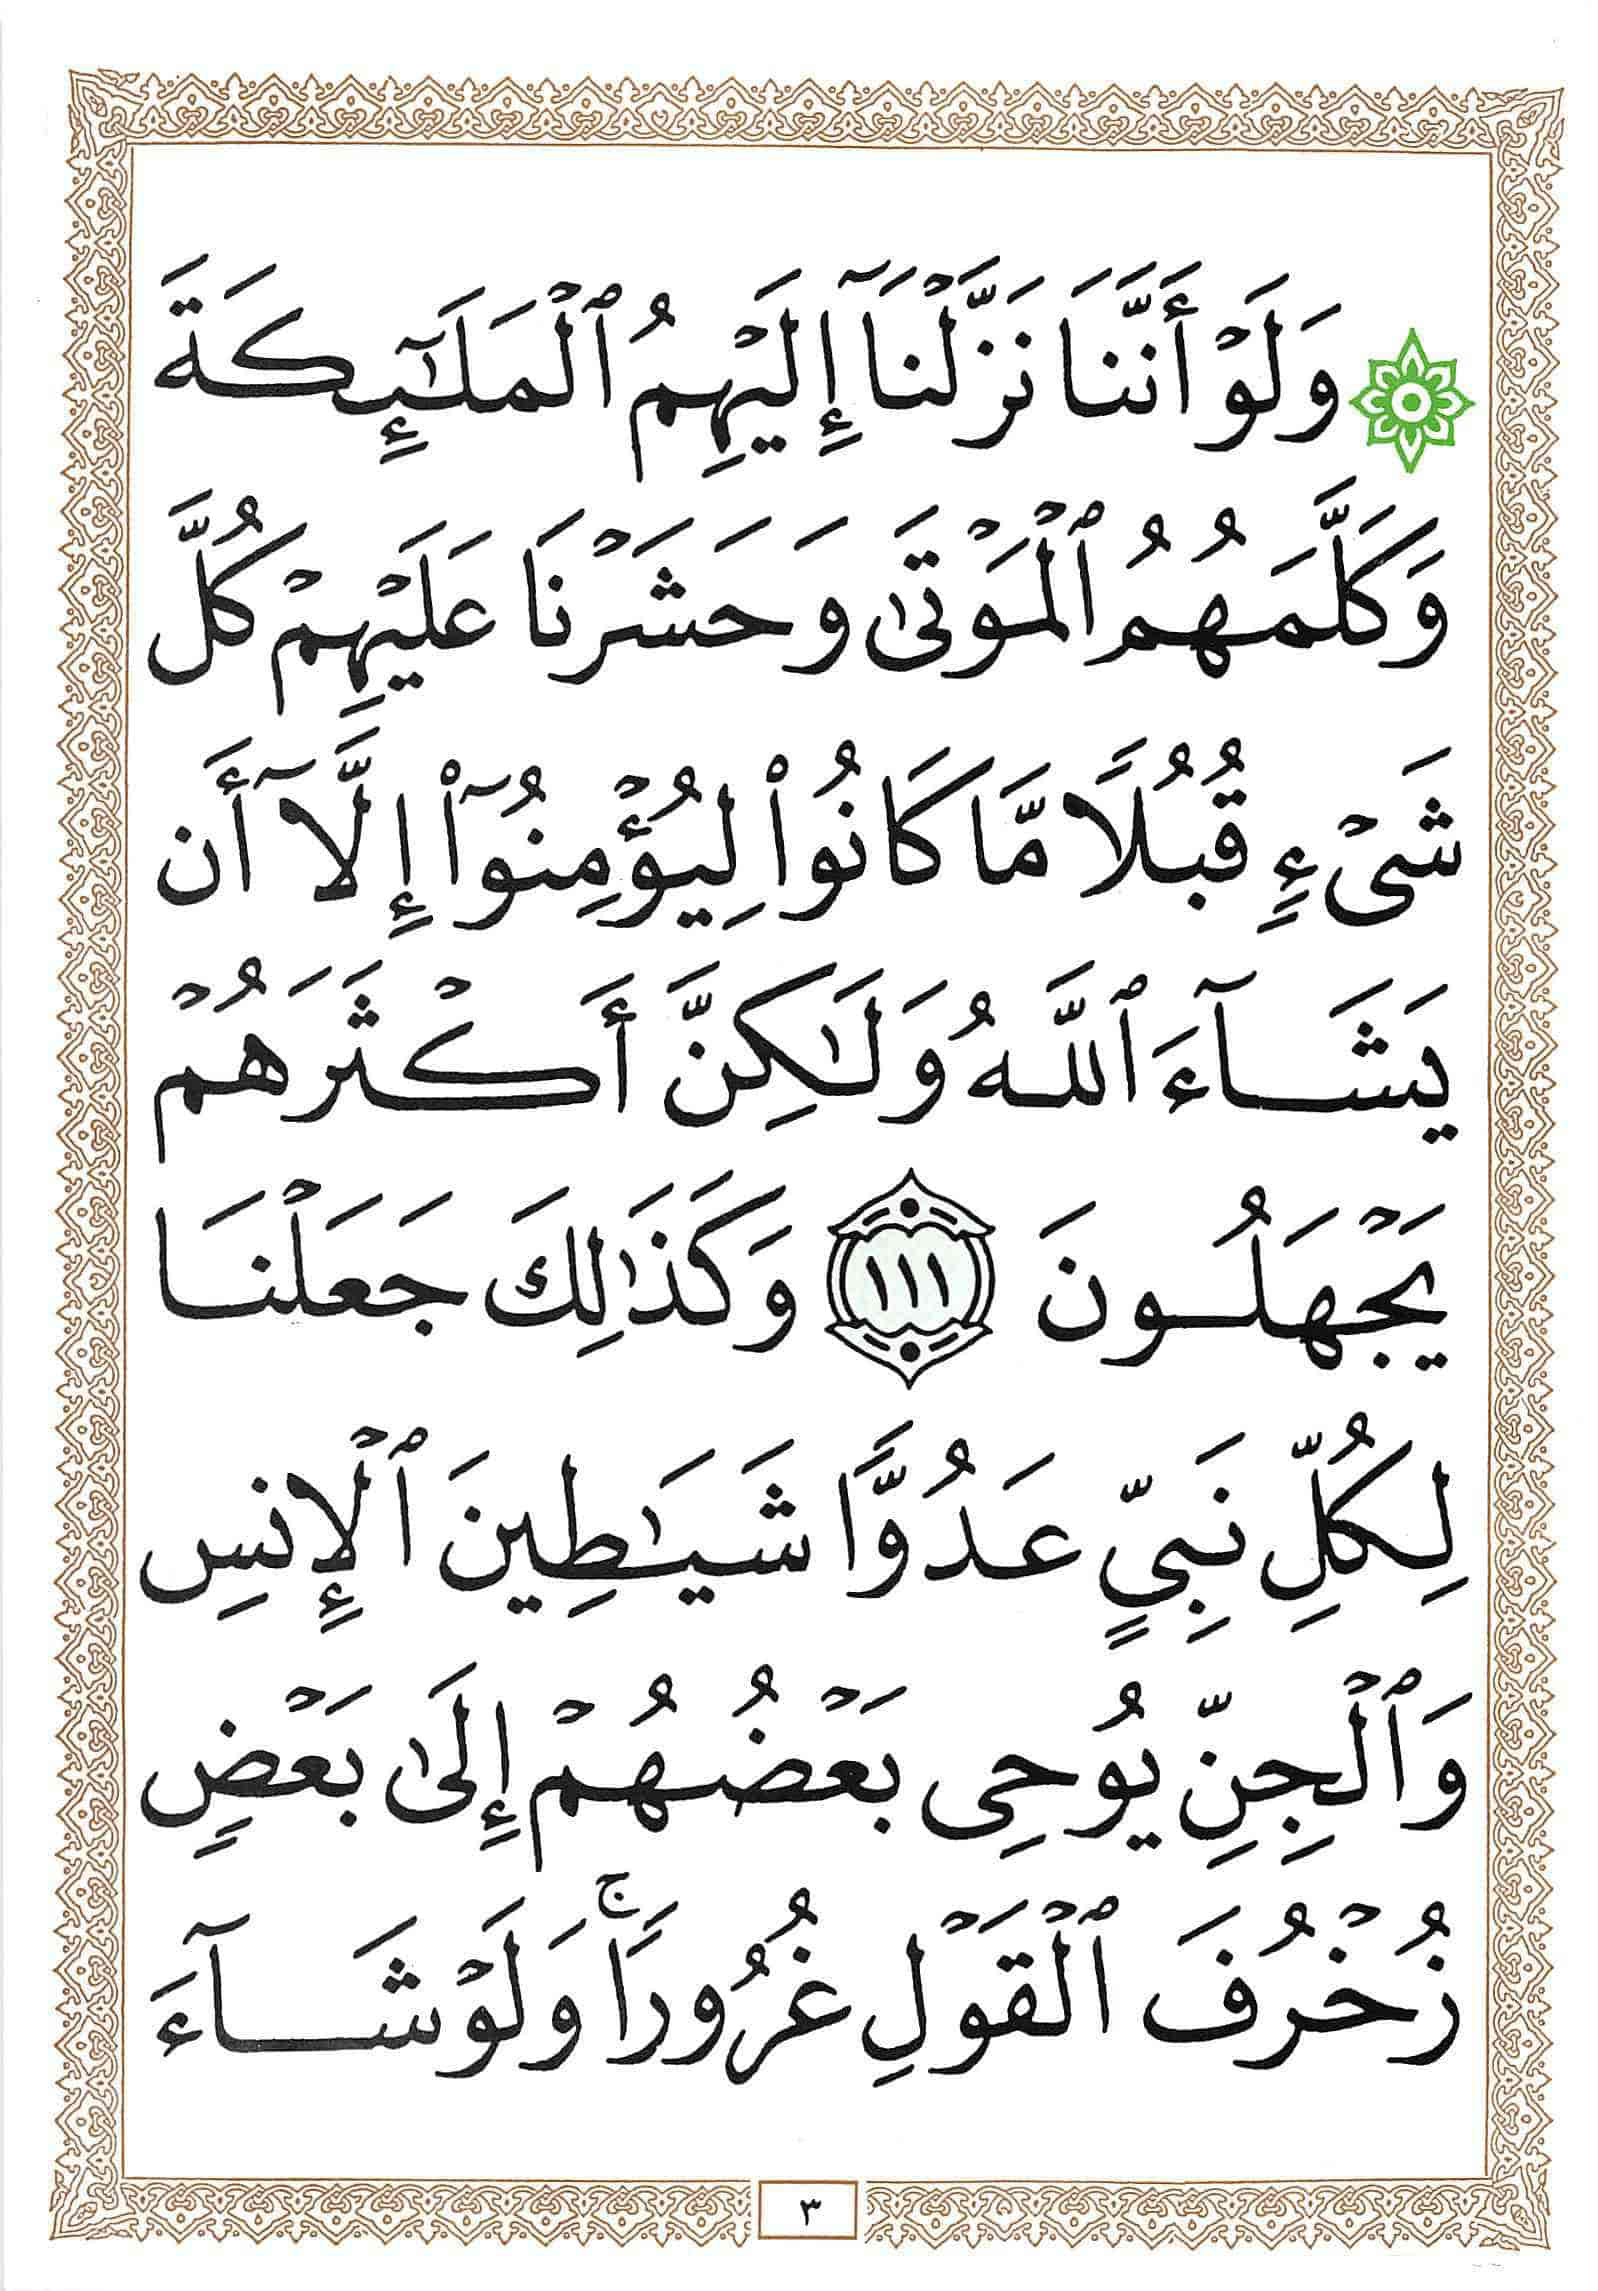 وَلَوۡ أَنَّنَا نَزَّلۡنَآ إِلَيۡهِمُ ٱلۡمَلَـٰٓئِكَةَ
وَكَلَّمَهُمُ ٱلۡمَوۡتَىٰ وَحَشَرۡنَا عَلَيۡهِمۡ كُلَّ
شَيۡءٖ قُبُلٗا مَّا كَانُواْ لِيُؤۡمِنُوٓاْ إِلَّآ أَن
يَشَآءَ ٱللَّهُ وَلَـٰكِنَّ أَكۡثَرَهُمۡ
يَجۡهَلُونَ ١١١ وَكَذَٰلِكَ جَعَلۡنَا
لِكُلِّ نَبِيٍّ عَدُوّٗا شَيَـٰطِينَ ٱلۡإِنسِ
وَٱلۡجِنِّ يُوحِي بَعۡضُهُمۡ إِلَىٰ بَعۡضٖ
زُخۡرُفَ ٱلۡقَوۡلِ غُرُورٗاۚ وَلَوۡ شَآءَ
٣